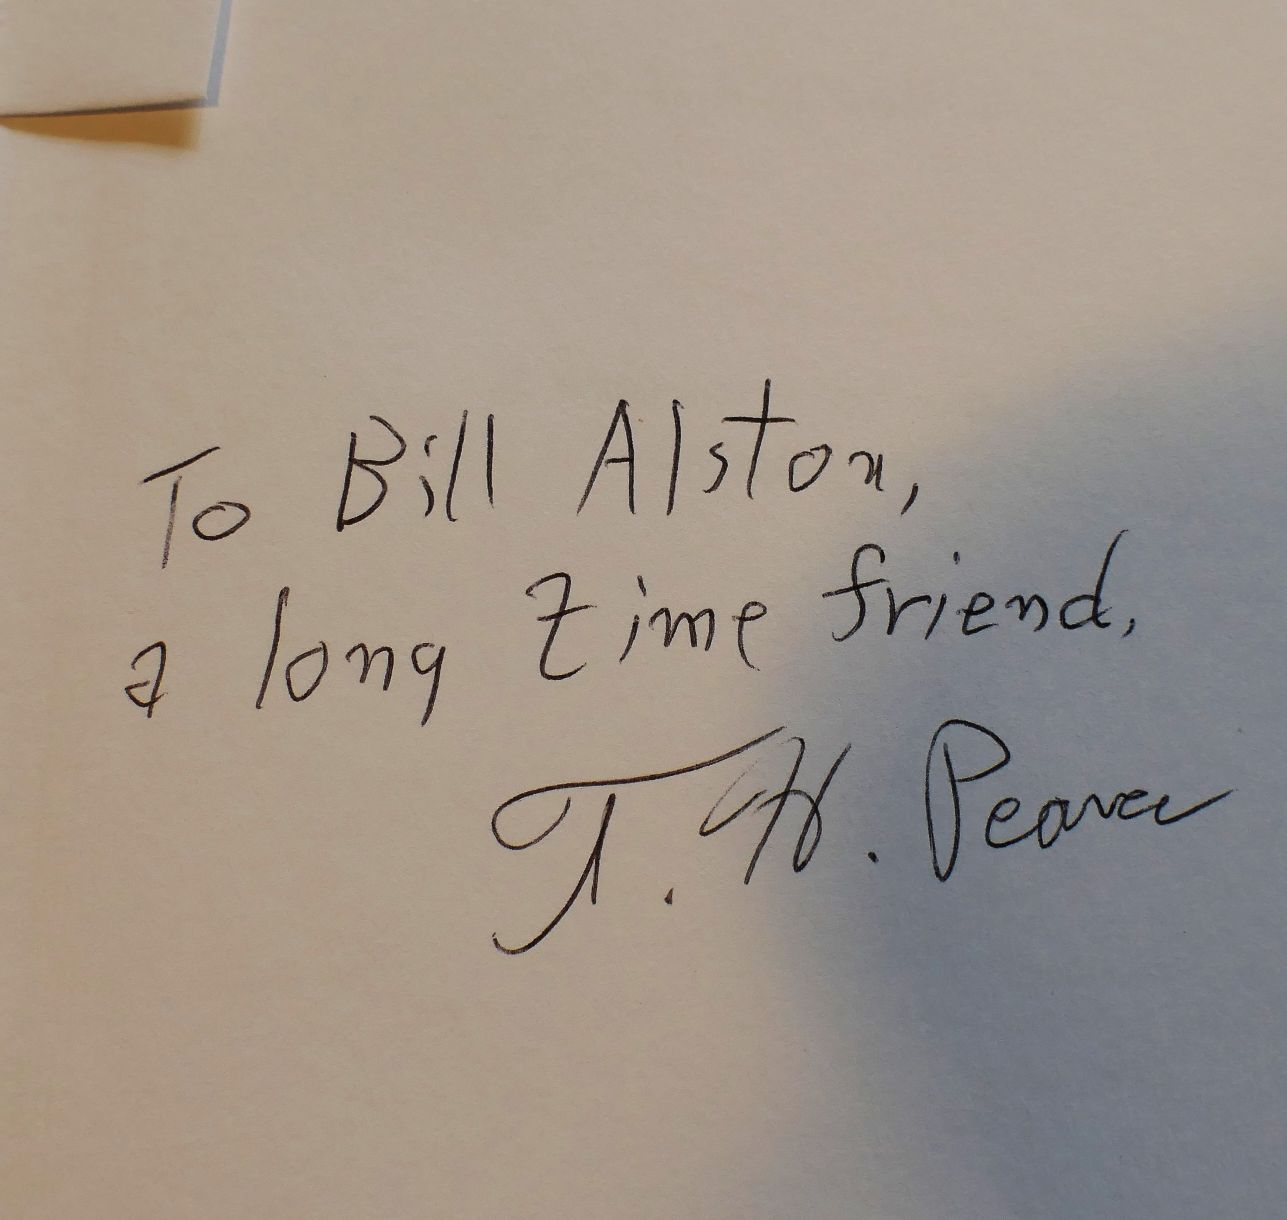 To Bill Alston,
a long time friend,
T. H.